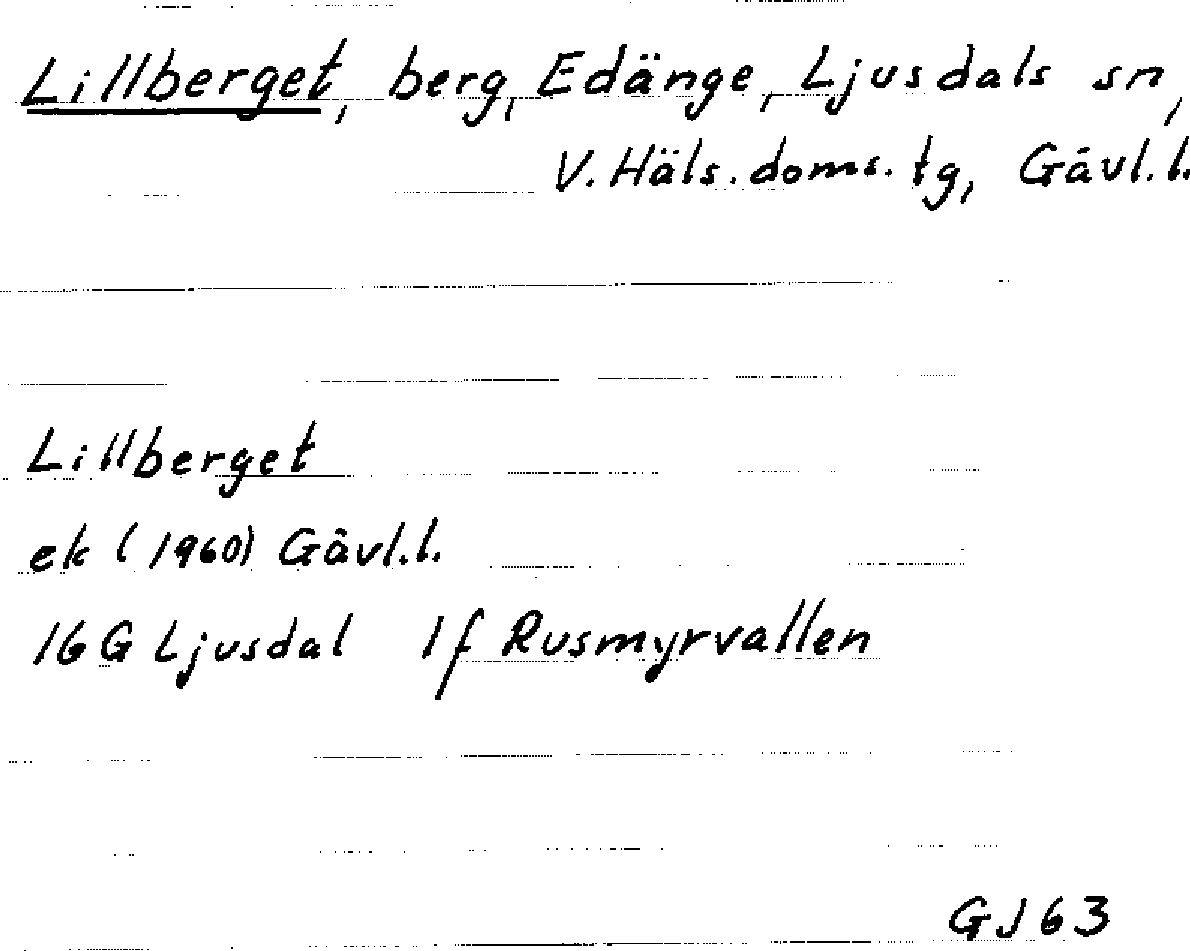 Lillberget, berg, Edänge, Ljusdals sn,
V. Häls. doms. tg, Gävl. l.
Lillberget
ek (1960) Gävl. l.
16 G Ljusdal 1 f Rusmyrvallen
GJ 63